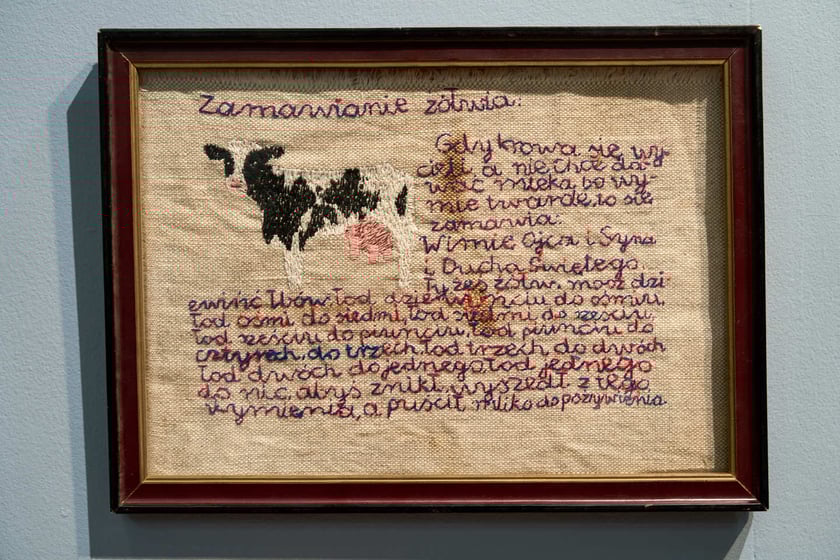 Zamawianie żółwia:
Gdy krowa się wy-
cieli, a nie chce da-
wać mleka, bo wy-
mie twarde, to się
zamawia:
W imię Ojca i Syna
i Ducha Świętego,
Tyżeś żółw, mosz dzi-
ewińć łbów, łod dziewińciu do ośmiu,
łod ośmi do siedmi, łod siedmi doześciu,
łod ześciu do piuńciu, łod piuńciu do
cztyrech, do trzech, łod trzech do dwóch
łod dwóch do jednego, łod jednego
do nic, abyś znikł, wyszedł z tego
wymienia, a puścił mliko do pożywienia.